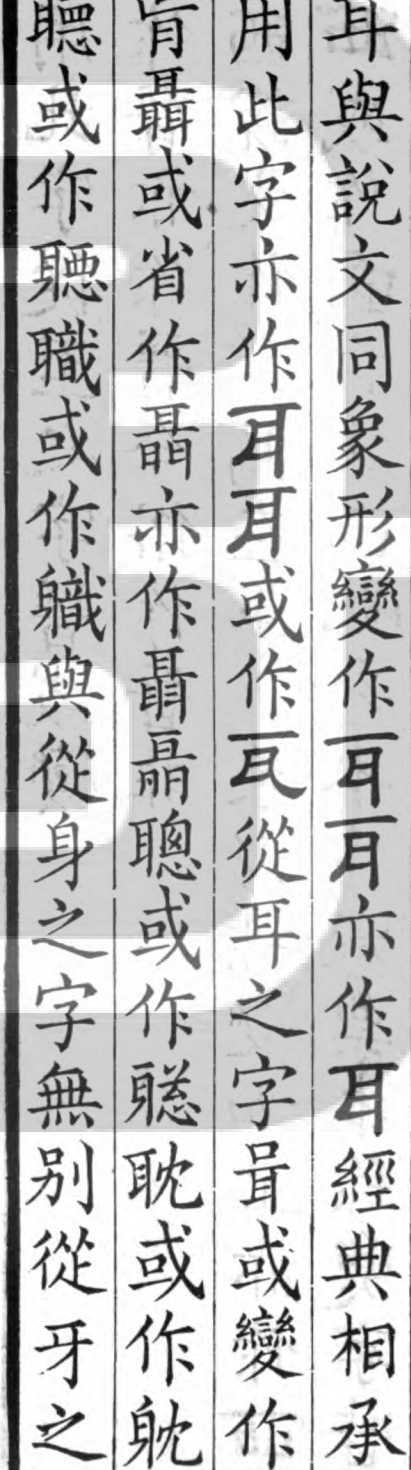 耳與說文同象形變作耳耳亦作耳經典相承
用此字亦作耳耳或作瓦從耳之字咠或變作
聶或省作聶亦作聶聶聰或作聡耽或作躭
聽或作聴職或作軄與從身之字無別從牙之